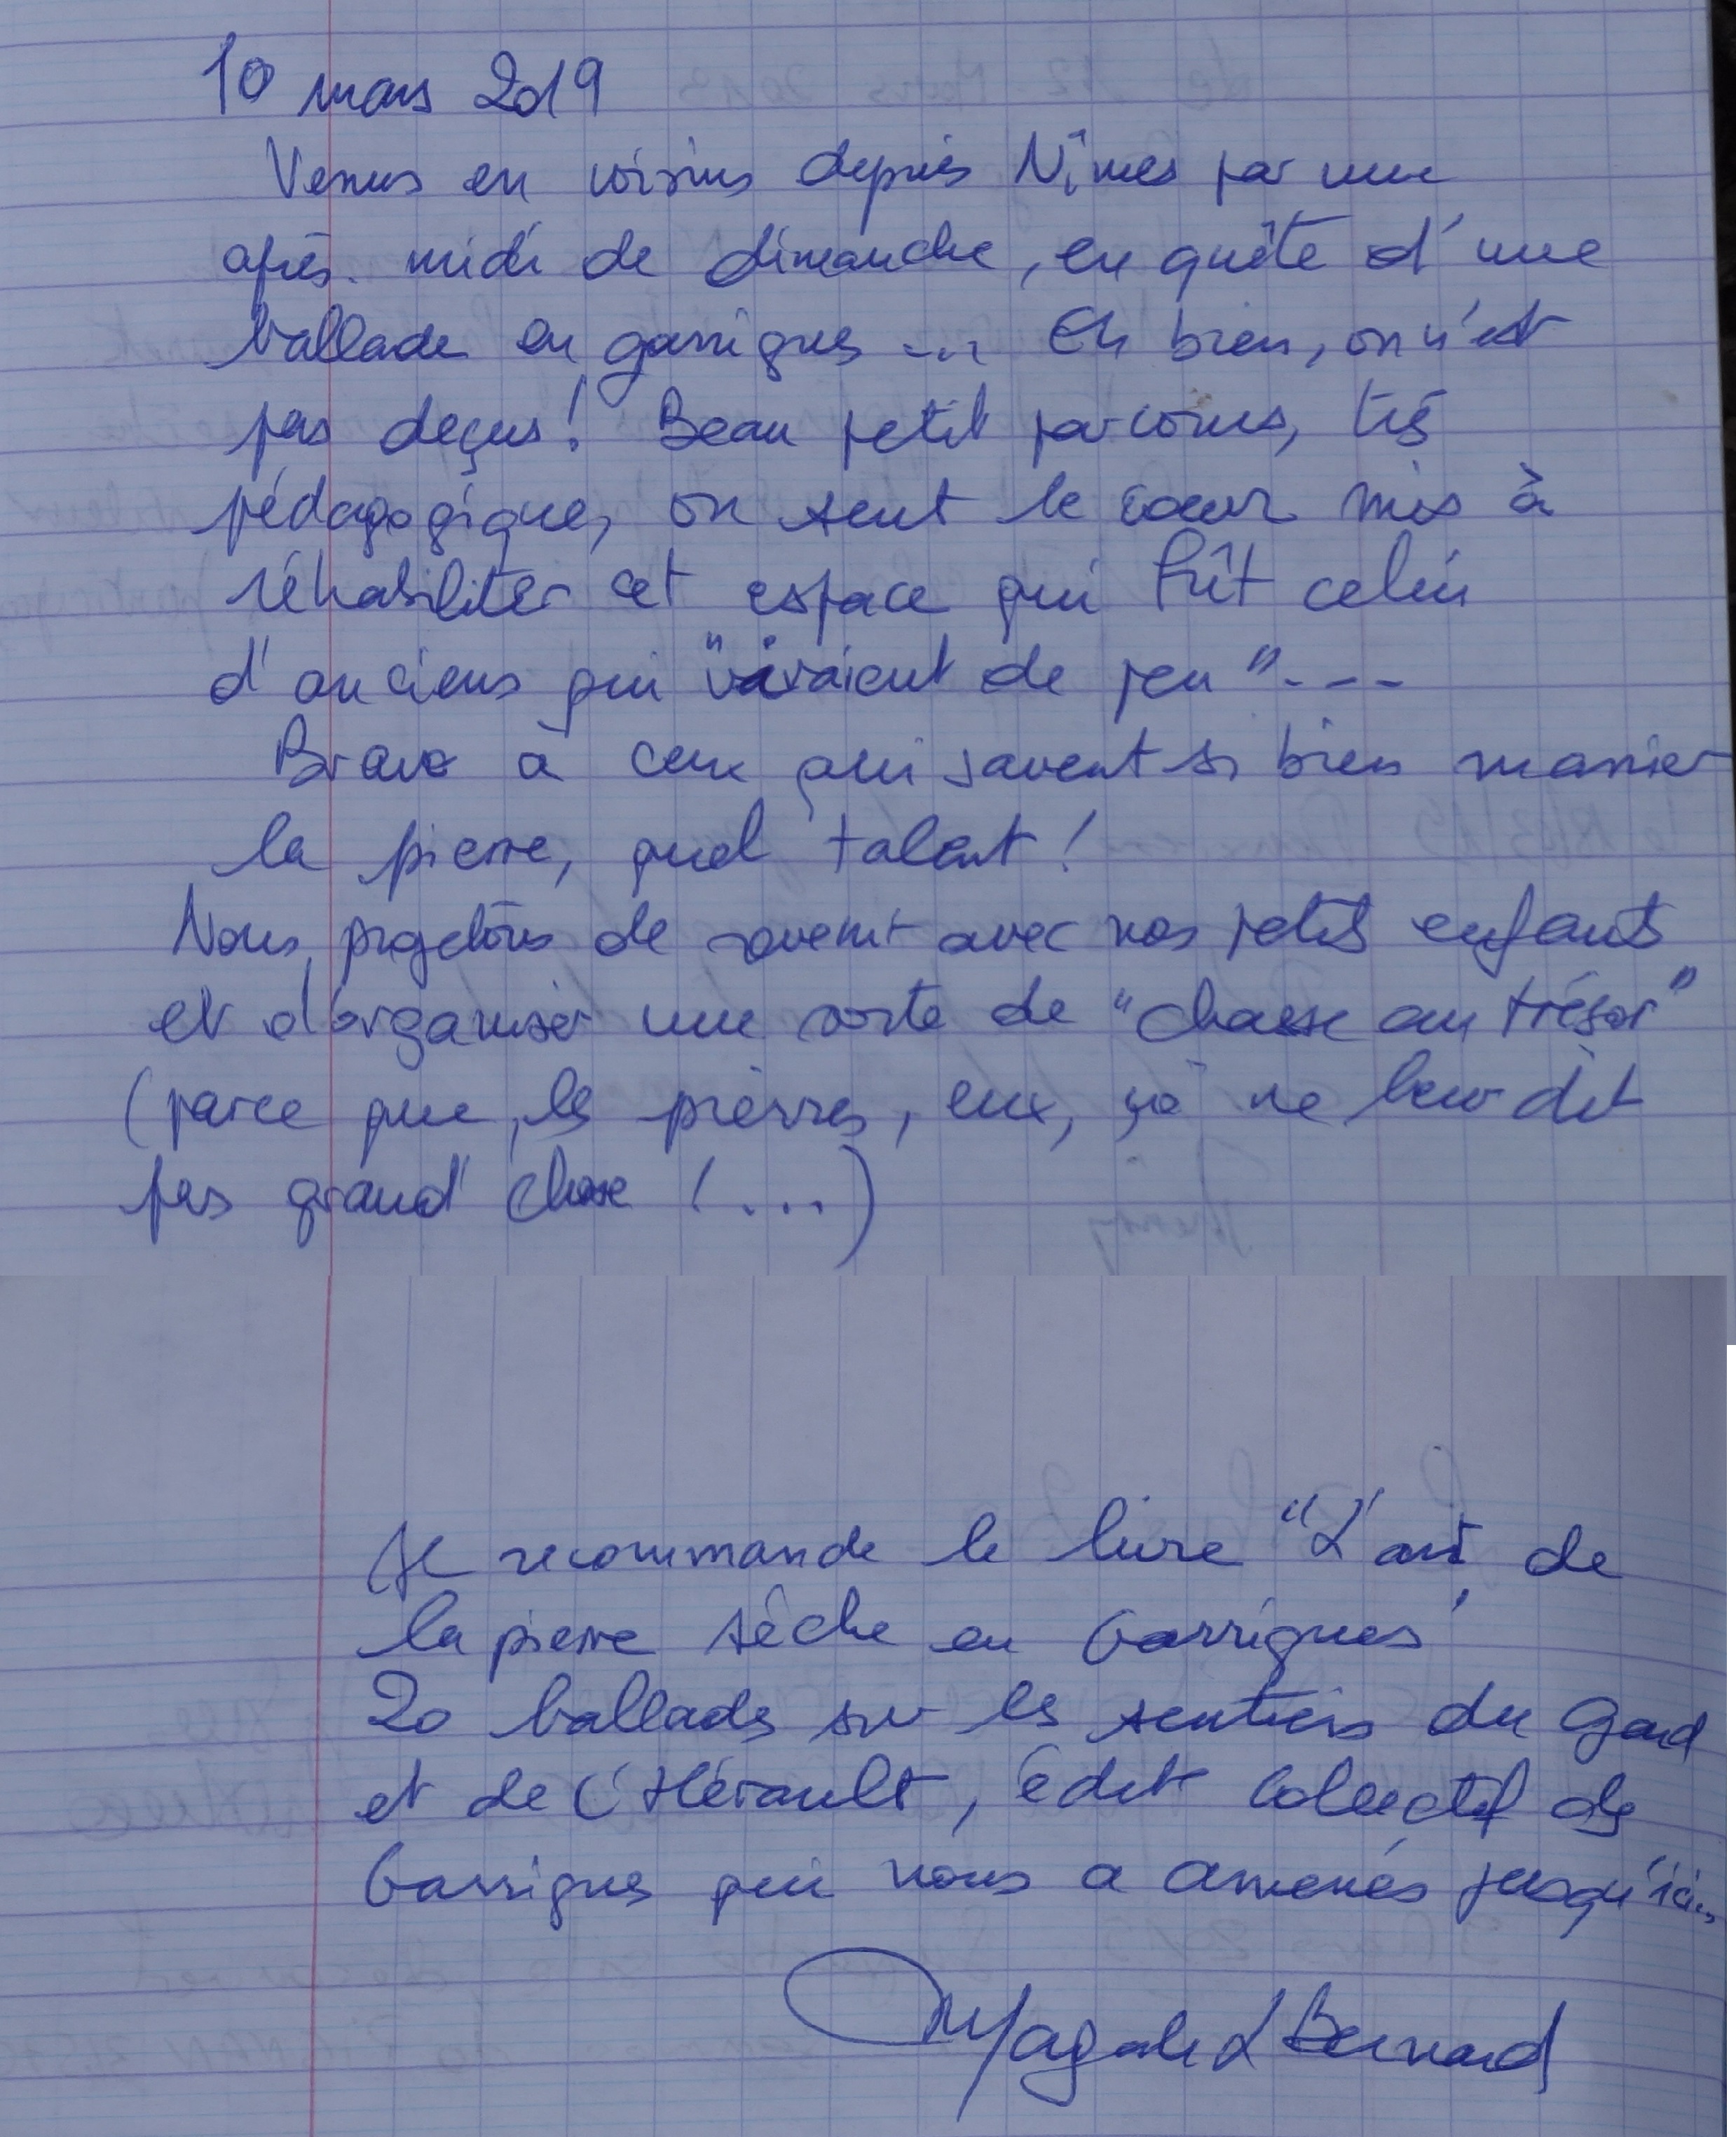 10 mars 2019
Venus en voisins depuis Nîmes par une
après-midi de dimanche, en quête d'une
ballade en garrigues ... Eh bien, on n'est
pas deçus ! Beau petit parcours, très
pédagogique, on sent le coeur mis à
réhabiliter cet espace qui fût celui
d'anciens qui "vivaient de peu" ---
Bravo à ceux qui savent si bien manier
la pierre, quel talent !
Nous projetons de revenir avec nos petits enfants
et d'organiser une sorte de "chasse au trésor"
(parce que, les pierres, eux, ça ne leur dit
pas grand' chose ! ...)
Je recommande le livre "L'art de
la pierre sêche en Garrigues'
20 ballades sur les sentiers du Gard
et de l'Hérault, édit Collectif des
Garrigues qui nous a amenés jusqu'ici.
Magali & Bernard